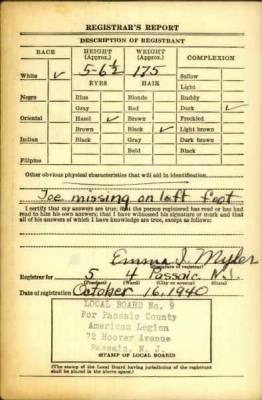 REGISTRAR'S REPORT
DESCRIPTION OF REGISTRANT
RACE HEIGHT (Approx.) WEIGHT (Approx.) COMPLEXION
White ✓ 5-6½ 175 Sallow
EYES HAIR Light
Negro Blue Blonde Ruddy
Gray Red Dark ✓
Oriental Hazel ✓ Brown Freckled
Brown Black ✓ Light brown
Indian Black Gray Dark brown
Bald Black
Filipino
Other obvious physical characteristics that will aid in identification
Toe missing on left foot
I certify that my answers are true; that the person registered has read or has had
read to him his own answers; that I have witnessed his signature or mark and that
all of his answers of which I have knowledge are true, except as follows:
Emma I. Myler
(Signature of registrar)
Registrar for 5 4 Passaic N.J.
(Precinct) (Ward) (City or county) (State)
Date of registration October 16, 1940
LOCAL BOARD No. 9
For Passaic County
American Legion
72 Hoover Avenue
Passaic, N. J.
(STAMP OF LOCAL BOARD)
(The stamp of the Local Board having jurisdiction of the registrant
shall be placed in the above space.)